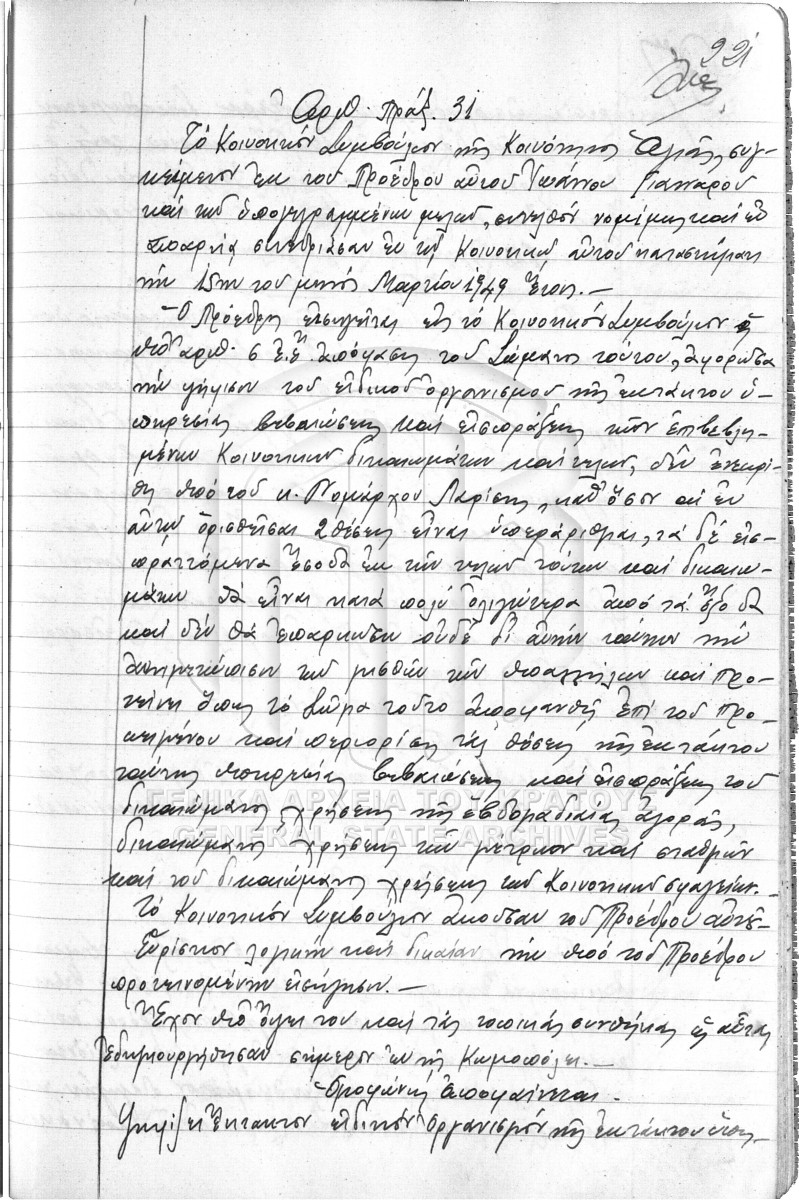 221
Αριθ. πράξ. 31
Τό Κοινοτικόν Συμβούλιον τῆς Κοινότητος Ἀγιᾶς, συγ-
κείμενον ἐκ τοῦ Προέδρου αὐτοῦ Ἰωάννου
καί τῶν ὑπογεγραμμένων μελῶν, συνελθόν νομίμως καί ἐν
ἀπαρτίᾳ συνεδρίασαν ἐν τῷ Κοινοτικῷ αὐτοῦ καταστήματι
τήν 15ην τοῦ μηνός Μαρτίου 1949 ἔτους. —
Ὁ Πρόεδρος εἰσηγεῖται εἰς τό Κοινοτικόν Συμβούλιον ὅτι
ὑπ' ἀριθ. 5 ἐ.ἔ. ἀπόφασις τοῦ Σώματος τούτου, ἀφορῶσα
τήν ψήφισιν τοῦ εἰδικοῦ ὀργανισμοῦ τῆς ἐκτάκτου ὑ-
πηρεσίας βεβαιώσεως καί εἰσπράξεως τῶν ἐπιβεβλη-
μένων Κοινοτικῶν δικαιωμάτων καί τελῶν, δέν ἐνεκρί-
θη ὑπό τοῦ κ. Νομάρχου Λαρίσης, καθ' ὅσον αἱ ἐν
αὐτῷ ὁρισθεῖσαι 2 θέσεις εἶναι ὑπεράριθμαι, τά δέ εἰσ-
πραττόμενα ἔσοδα ἐκ τῶν τελῶν τούτων καί δικαιω-
μάτων θά εἶναι κατά πολύ ὀλιγώτερα ἀπό τά ἔξοδα
καί δέν θά ἐπαρκέσουν οὐδέ δι' αὐτήν ταύτην τήν
ἀντιμετώπισιν τῶν μισθῶν τῶν ὑπαλλήλων καί προ-
τείνει ὅπως τό Σῶμα τοῦτο ἀποφανθῇ ἐπί τοῦ προ-
κειμένου καί περιορίσῃ τάς θέσεις τῆς ἐκτάκτου
ταύτης ὑπηρεσίας βεβαιώσεως καί εἰσπράξεως τοῦ
δικαιώματος χρήσεως τῆς ἑβδομαδιαίας ἀγορᾶς,
δικαιώματος χρήσεως τῶν μέτρων καί σταθμῶν
καί τοῦ δικαιώματος χρήσεως τῶν Κοινοτικῶν σφαγείων. —
Τό Κοινοτικόν Συμβούλιον ἀκοῦσαν τοῦ Προέδρου αὐτοῦ —
Εὑρίσκον λογικήν καί δικαίαν τήν ὑπό τοῦ Προέδρου
προτεινομένην εἰσήγησιν. —
Ἔχον ὑπ' ὄψει του καί τάς τοπικάς συνθήκας ὡς αὗται
ἐδημιουργήθησαν σήμερον ἐν τῇ Κωμοπόλει. —
Ὁμοφώνως ἀποφαίνεται —
Ψηφίζει ἔκτακτον εἰδικόν ὀργανισμόν τῆς ἐκτάκτου
ΓΕΝΙΚΑ ΑΡΧΕΙΑ ΤΟΥ ΚΡΑΤΟΥΣ
GENERAL STATE ARCHIVES